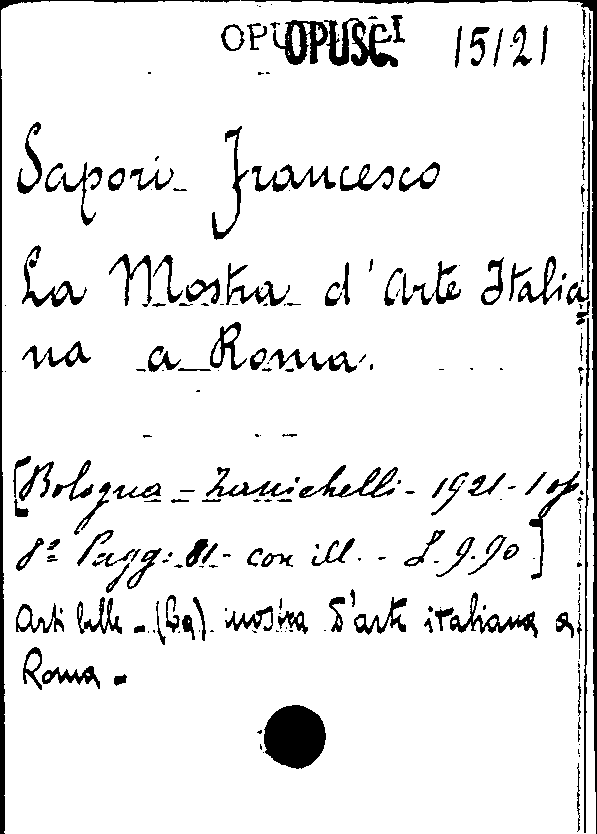 OPUSC. 15121
Sapori Francesco
La Mostra d'Arte Italia
na a Roma.
[Bologna - Zanichelli - 1921 - 1 op.
8º Pagg: 81 - con ill. - L. 9.90]
Arti belle - (La) mostra d'arte italiana a
Roma -